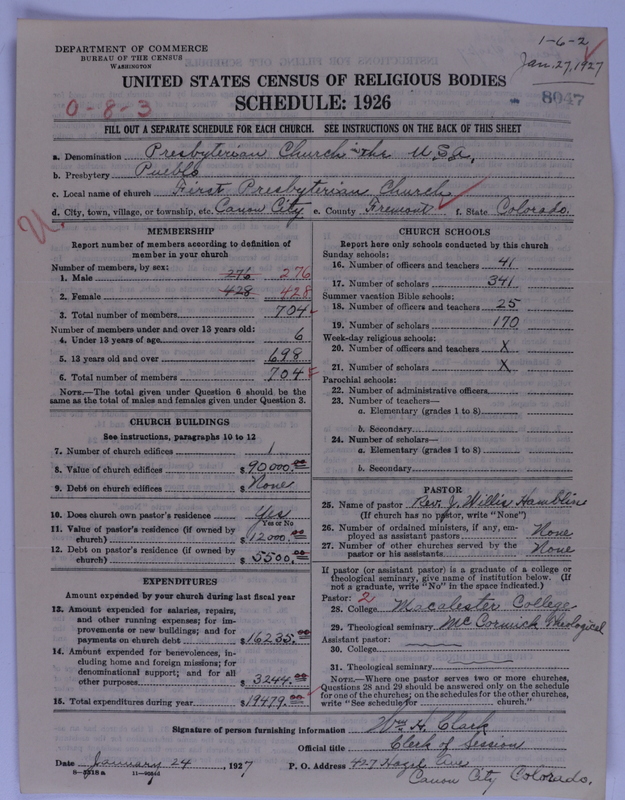 1-6-2
DEPARTMENT OF COMMERCE
BUREAU OF THE CENSUS
WASHINGTON
Jan. 27, 1927
UNITED STATES CENSUS OF RELIGIOUS BODIES
SCHEDULE: 1926
0-8-3
8047
FILL OUT A SEPARATE SCHEDULE FOR EACH CHURCH. SEE INSTRUCTIONS ON THE BACK OF THIS SHEET
a. Denomination Presbyterian Church in the U.S.A.
b. Presbytery Pueblo
c. Local name of church First Presbyterian Church
d. City, town, village, or township, etc. Canon City e. County Fremont f. State Colorado.
U.
MEMBERSHIP
Report number of members according to definition of
member in your church
Number of members, by sex:
1. Male 276 276
2. Female 428 428
3. Total number of members 704
Number of members under and over 13 years old:
4. Under 13 years of age 6
5. 13 years old and over 698
6. Total number of members 704
NOTE.—The total given under Question 6 should be the
same as the total of males and females given under Question 3.
CHURCH BUILDINGS
See instructions, paragraphs 10 to 12
7. Number of church edifices 1
8. Value of church edifices $90000.00
9. Debt on church edifices $None
10. Does church own pastor's residence Yes
Yes or No
11. Value of pastor's residence (if owned by
church) $12000.00
12. Debt on pastor's residence (if owned by
church) $5500.00
EXPENDITURES
Amount expended by your church during last fiscal year
13. Amount expended for salaries, repairs,
and other running expenses; for im-
provements or new buildings; and for
payments on church debt $16235.00
14. Amount expended for benevolences, in-
cluding home and foreign missions; for
denominational support; and for all
other purposes $3244.00
15. Total expenditures during year $19479.00
CHURCH SCHOOLS
Report here only schools conducted by this church
Sunday schools:
16. Number of officers and teachers 41
17. Number of scholars 341
Summer vacation Bible schools:
18. Number of officers and teachers 25
19. Number of scholars 170
Week-day religious schools:
20. Number of officers and teachers X
21. Number of scholars X
Parochial schools:
22. Number of administrative officers
23. Number of teachers—
a. Elementary (grades 1 to 8)
b. Secondary
24. Number of scholars—
a. Elementary (grades 1 to 8)
b. Secondary
PASTOR
25. Name of pastor Rev. J. Willis Hamblin
(If church has no pastor, write "None")
26. Number of ordained ministers, if any, em-
ployed as assistant pastors None
27. Number of other churches served by the
pastor or his assistants None
If pastor (or assistant pastor) is a graduate of a college or
theological seminary, give name of institution below. (If
not a graduate, write "No" in the space indicated.)
Pastor: 2
28. College Macalester College
29. Theological seminary McCormick Theological
Assistant pastor:
30. College
31. Theological seminary
NOTE.—Where one pastor serves two or more churches,
Questions 28 and 29 should be answered only on the schedule
for one of the churches; on the schedules for the other churches,
write "See schedule for church."
Signature of person furnishing information Wm H. Clark
Official title Clerk of Session
Date January 24, 1927 P. O. Address 427 Hazel Ave
Canon City Colorado.